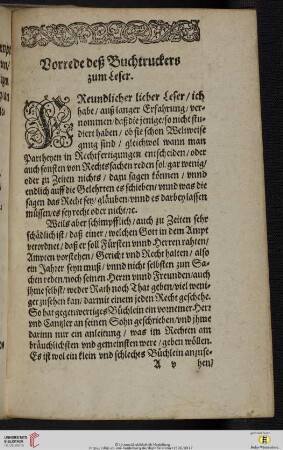 Vorrede deß Buchtruckers
zum Leser.
FReundlicher lieber Leser/ ich
habe/ auß langer Erfahrung/ ver-
nommen/ daß die jenige/ so nicht stu-
diert haben/ ob sie schon Weltweise
gnug sind/ gleichwol wann man
Partheyen in Rechtfertigungen entscheiden/ oder
auch sonsten von Rechtssachen reden sol/ gar wenig/
oder zu Zeiten nichts/ dazu sagen können/ vnnd
endlich auff die Gelehrten es schieben/ vnnd was die
sagen das Recht sey/ glauben/ vnnd es darbey lassen
müssen/ es sey recht oder nicht/ ꝛc.
Weils aber schimpfflich/ auch zu Zeiten sehr
schädlich ist/ daß einer/ welchen Gott in dem Ampt
verordnet/ daß er soll Fürsten vnnd Herren rahten/
Ampten vorstehen/ Gericht vnd Recht halten/ also
ein Jaherr seyn muß/ vnnd nicht selbsten zun Sa-
chen reden/ noch seinen Herrn vnnd Freunden/ auch
ihme selbst/ weder Rath noch That geben/ viel weni-
ger zusehen kan/ darmit einem jeden Recht geschehe.
So hat gegenwertiges Büchlein ein vornemer Herr
vnd Cantzler an seinen Sohn geschrieben/ vnd ihme
darinn nur ein anleitung/ was im Rechten am
bräuchlichsten vnd gemeinsten were/ geben wöllen.
Es ist wol ein klein vnd schlechts Büchlein anzuse-
A v hen/